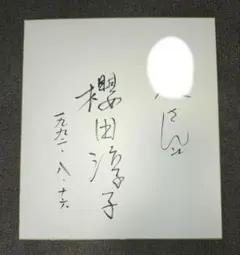 さんへ
櫻田淳子
一九九二・八・十六